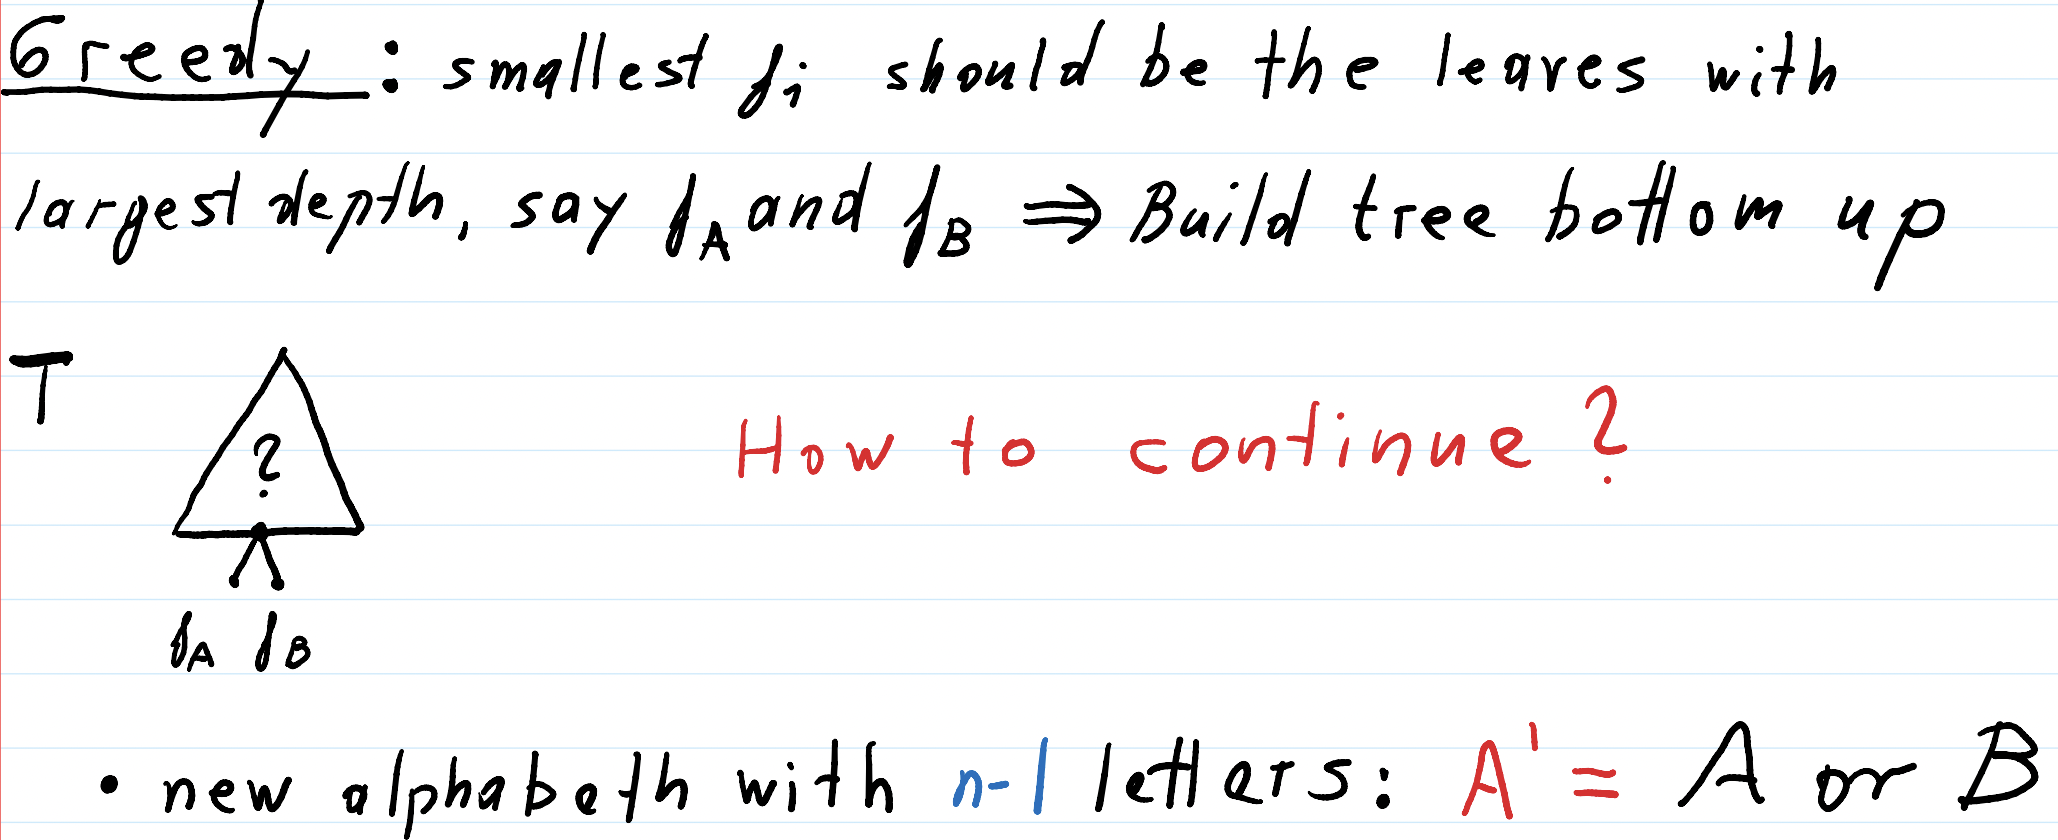 Greedy: smallest fi should be the leaves with
largest depth, say fA and fB ⇒ Build tree bottom up
T
?
How to continue?
fA fB
• new alphabeth with n-1 letters: A' = A or B